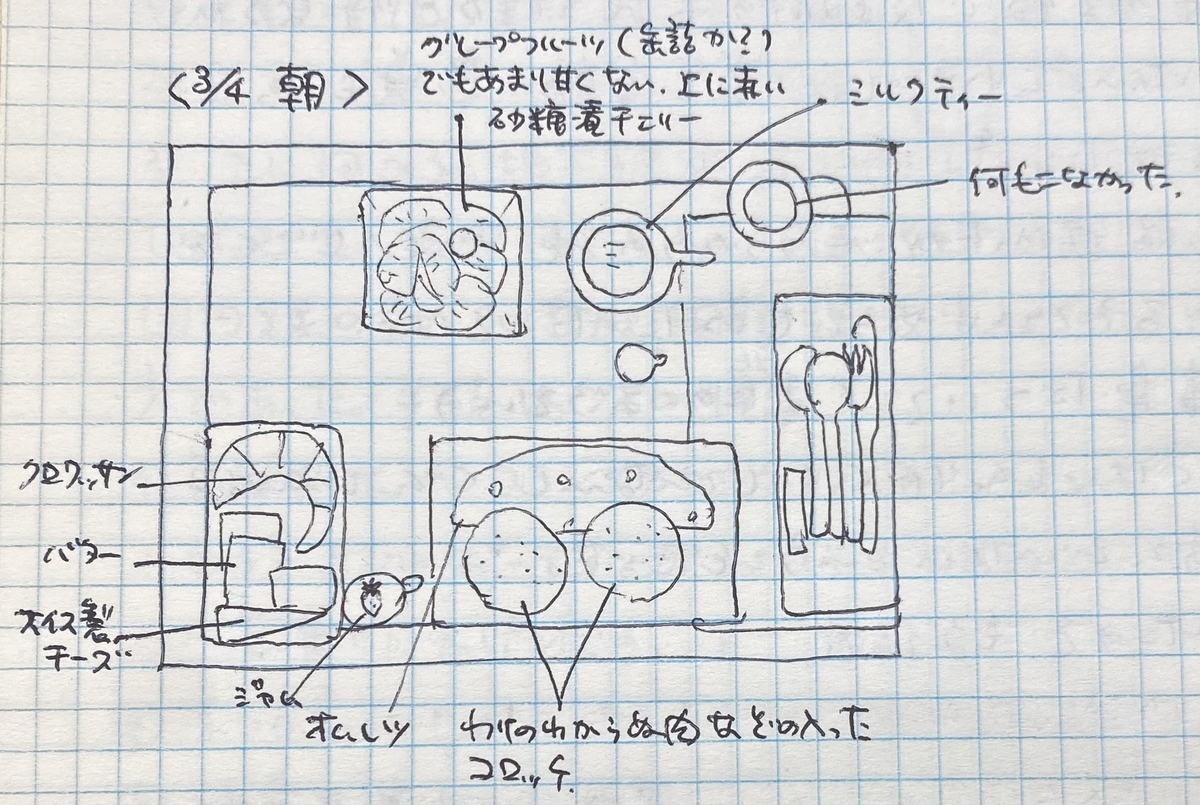 <3/4 朝>
グレープフルーツ(缶詰か?)
でもあまり甘くない.上に赤い
砂糖煮チェリー
ミルクティー
何もこなかった.
クロワッサン
バター
スイス製
チーズ
ジャム
オムレツ
わけのわからぬ肉などの入った
コロッケ.